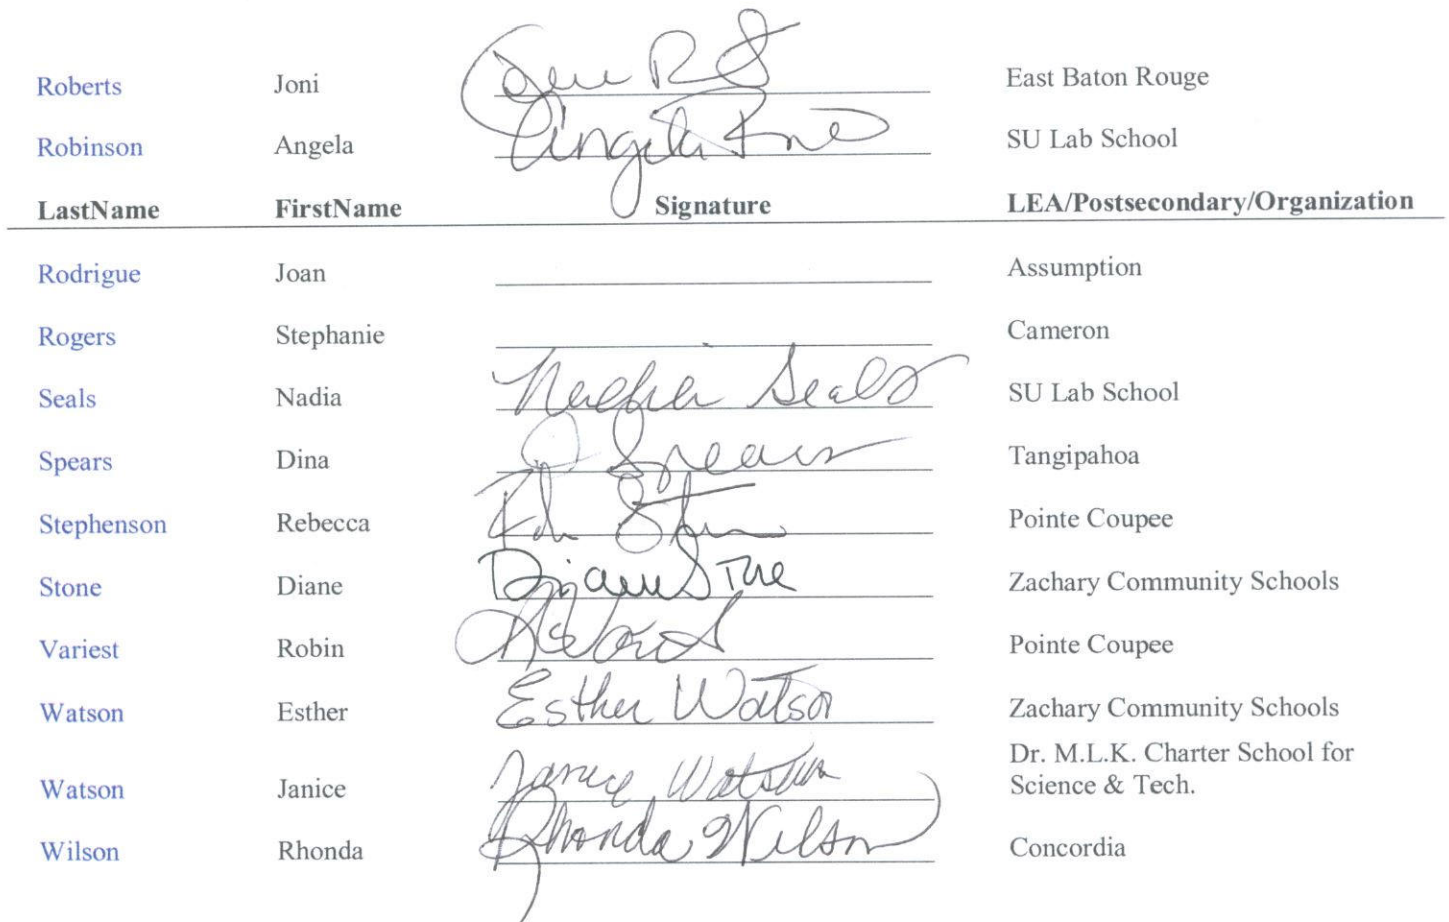 Roberts Joni East Baton Rouge
Robinson Angela Angela SU Lab School
LastName FirstName Signature LEA/Postsecondary/Organization
Rodrigue Joan Assumption
Rogers Stephanie Cameron
Seals Nadia Seals SU Lab School
Spears Dina D Spears Tangipahoa
Stephenson Rebecca Pointe Coupee
Stone Diane Zachary Community Schools
Variest Robin Pointe Coupee
Watson Esther Esther Watson Zachary Community Schools
Dr. M.L.K. Charter School for
Watson Janice Janice Watson Science & Tech.
Wilson Rhonda Rhonda Wilson Concordia